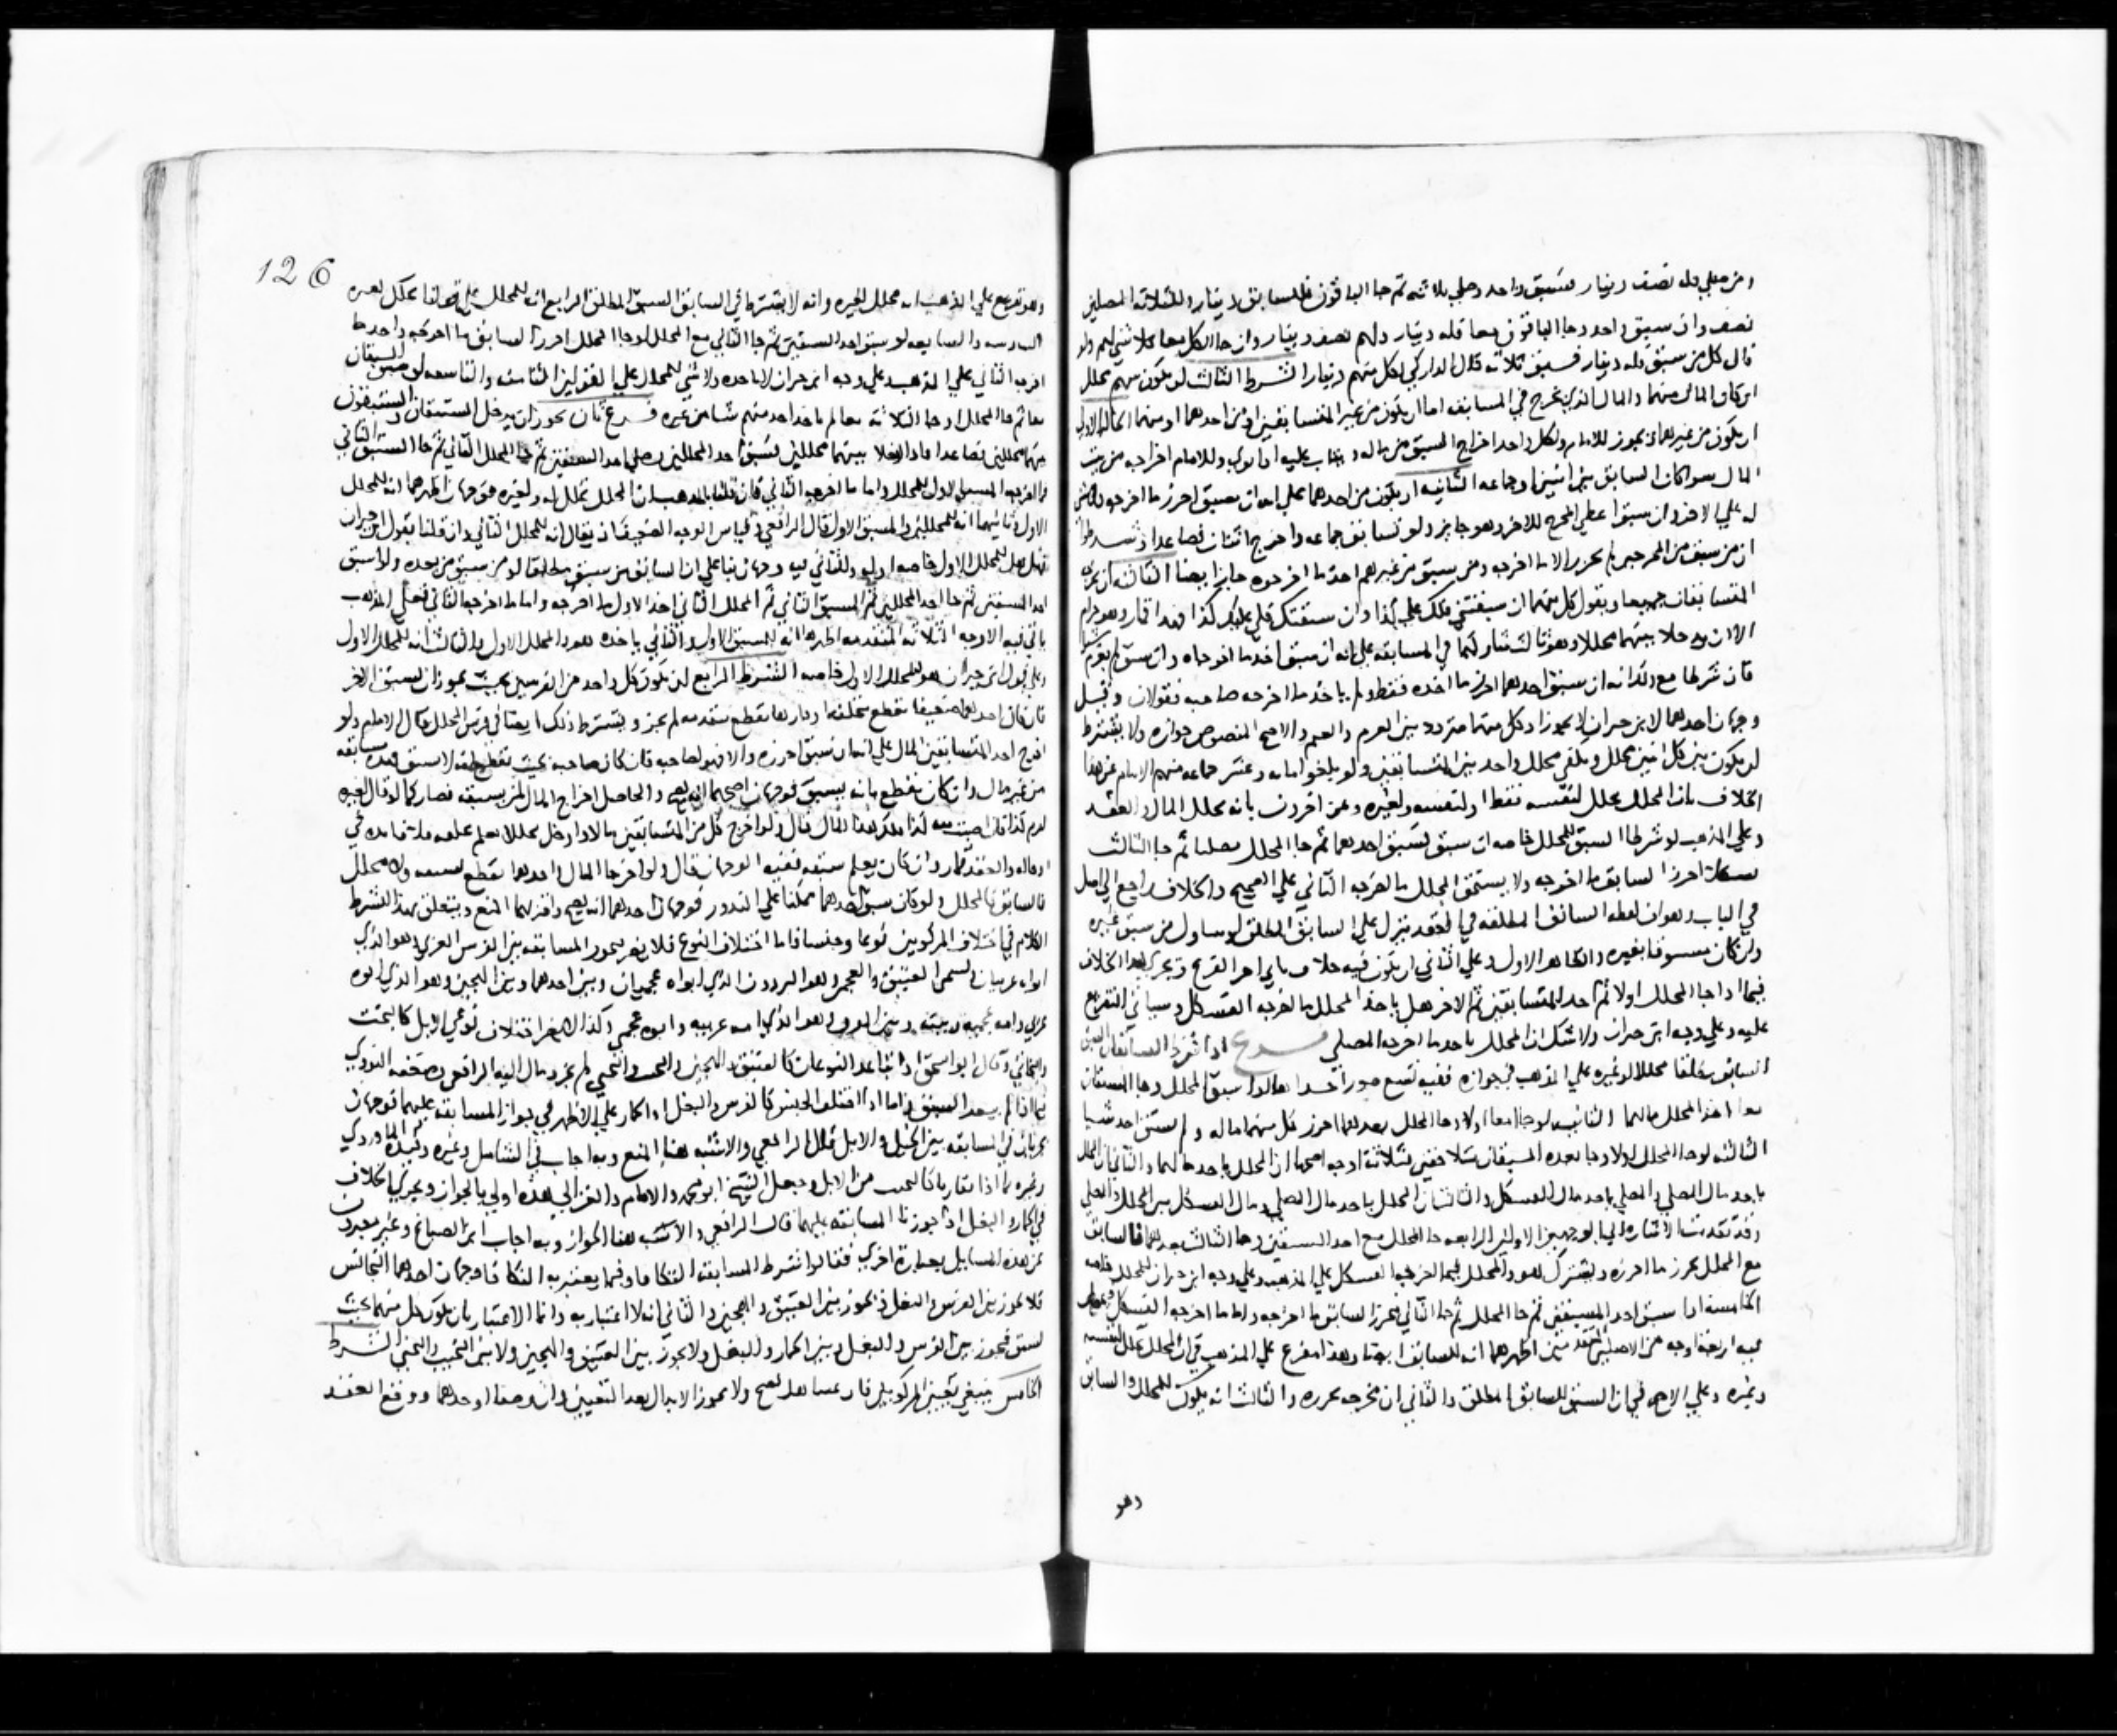 ومن صلي فله نصف دينار فسبق واحد وصلي ثلاثه ثم جا الباقون فللسابق دينار وللثلاثه المصلين
نصف وان سبق واحد وجا الباقون معا فله دينار ولهم نصف دينار وان جا الكل معا فلا شي لهم ولو
قال كل من سبق فله دينار فسبق ثلاثه قال الداركي لكل منهم دينار الشرط الثالث ان يكون منهم محلل
ان كان المال منهما والمال الذي يخرج في المسابقه اما ان يكون من غير المتسابقين او من احدهما او منهما الحاله الاولي
ان يكون من غيرهما فيجوز للامام ولكل واحد اخراج السبق من ماله ويثاب عليه اذا نوي وللامام اخراجه من بيت
المال سوا كان السابق بين اثنين او جماعه الثانيه ان يكون من احدهما علي انه ان سبق احرز ما اخرجه ولا شي
له علي الاخر وان سبق اعطي المخرج للاخر وهو جايز ولو تسابق جماعه واخرج اثنان فصاعدا وشرطوا
ان من سبق من المخرجين لم يحرز الا ما اخرجه ومن سبق من غيرهم اخذ ما اخرجوه جاز ايضا الثالثه ان يخرج
المتسابقان جميعا ويقول كل منهما ان سبقتني فلك علي كذا وان سبقتك فلي عليك كذا فهذا قمار وهو حرام
الا ان يدخلا بينهما محللا وهو ثالث شاركهما في المسابقه علي انه ان سبق اخذ ما اخرجاه وان سبق لم يغرم شيا
فان شرطا مع ذلك انه ان سبق احدهما احرز ما اخرجه فقط ولم ياخذ ما اخرجه صاحبه فقولان وقيل
وجهان احدهما لابن خيران لا يجوز اذ كل منهما متردد بين الغرم والغنم والاصح المنصوص جوازه ولا يشترط
ان يكون بين كل اثنين محلل ويكفي محلل واحد بين المتسابقين ولو بلغوا مايه وعبر جماعه منهم الامام عن هذا
الخلاف بان المحلل يحلل لنفسه فقط او لنفسه ولغيره وعن اخرون بانه يحلل المال والعقد
وعلي المذهب لو شرطا السبق للمحلل خاصه ان سبق فسبق احدهما ثم جا المحلل مصليا ثم جا الثالث
فسكلا احرز السابق ما اخرجه ولا يستحق المحلل ما اخرجه الثاني علي الصحيح والخلاف راجع الي اصل
في الباب وهو ان لفظه السابق المطلقه في العقد ينزل علي السابق المطلق او يتناول من سبق غيره
وان كان مسبوقا بغيره والظاهر الاول وعلي الثاني ان يكون فيه خلاف ياتي اخر الفرع ويجري هذا الخلاف
فيما اذا جا المحلل اولا ثم احد المتسابقين ثم الاخر هل ياخذ المحلل ما اخرجه الفسكل وسياتي التفريع
عليه وعلي وجه ابن خيران ولا شك ان المحلل ياخذ ما اخرجه المصلي فرع اذا شرط المتسابقان السبق
للسابق مطلقا محللا او غيره علي المذهب في جوازه ففيه تسع صور احداها لو سبق المحلل وجا المستبقان
معا اخذ المحلل مالهما الثانيه لو جاا معا اولا وجا المحلل بعدهما احرز كل منهما ماله ولم يستحق احد شيا
الثالثه لو جا المحلل اولا وجا بعده المستبقان متلاحقين فثلاثه اوجه اصحها ان المحلل ياخذ مالهما والثاني ان المحلل
ياخذ مال المصلي والمصلي ياخذ مال الفسكل والثالث ان المحلل ياخذ مال المصلي ومال الفسكل بين المحلل والمصلي
وقد تقدمت الاشاره الي الوجهين الاولين الرابعه جا المحلل مع احد المستبقين وجا الثالث بعدهما فالسابق
مع المحلل يحرز ما احرزه ويشترك هو والمحلل فيما اخرجه الفسكل علي المذهب وعلي وجه ابن خيران للمحلل خاصه
الخامسه اذا سبق احد المستبقين ثم جا المحلل ثم جا الثاني يحرز السابق ما اخرجه واما ما اخرجه الفسكل
فيه اربعه اوجه من الاصلين المتقدمين اظهرهما انه للسابق ايضا وهذا مفرع علي المذهب في ان المحلل يحلل لنفسه
وغيره وعلي الاصح في ان السبق للسابق المطلق والثاني ان مخرجه يحرزه والثالث انه يكون للمحلل والسابق
وهو
126
وهو تفريع علي المذهب انه محلل لغيره وانه لا يشترط في السابق السبق المطلق الرابع انه للمحلل
السادسه والسابعه لو سبق احد المستبقين ثم جا الثاني مع المحلل او جا المحلل احرز السابق ما اخرجه واخذ ما
اخرجه الثاني علي المذهب وعلي وجه ابن خيران لا ياخذه ولا شي للمحلل علي القولين الثامنه والتاسعه لو سبق المستبقان
معا ثم جا المحلل او جا الثلاثه معا لم ياخذ احد منهم شيا من غيره فرع ثان يجوز ان يدخل المستبقان
بينهما محللين فصاعدا فاذا ادخلا بينهما محللين فسبق احد المحللين وصلي احد المستبقين ثم جا المحلل الثاني ثم جا المستبق الثاني
فما اخرجه المستبق الاول للمحلل الاول واما ما اخرجه الثاني فان قلنا بالمذهب ان المحلل يحلل له ولغيره فوجهان اظهرهما انه للمحلل
الاول وثانيهما انه للمحللين والمستبق الاول قال الرافعي وقياس الوجه الضعيف ان يقال انه للمحلل الثاني وان قلنا بقول ابن خيران
فهل هو للمحلل الاول خاصه او له وللثاني فيه وجهان بنا علي ان السابق من سبق مطلقا او من سبق من بعده ولو سبق
احد المستبقين ثم جا احد المحللين ثم المستبق الثاني ثم المحلل الثاني اخذ الاول ما اخرجه واما ما اخرجه الثاني فعلي المذهب
ياتي فيه الاوجه الثلاثه المتقدمه اظهرها انه للمستبق الاول والثاني ياخذه هو والمحلل الاول والثالث انه للمحلل الاول
وعلي قول ابن خيران هو للمحلل الاول خاصه الشرط الرابع ان يكون كل واحد من الفرسين بحيث يجوز ان يسبق الاخر
فان كان احدهما ضعيفا يقطع بتخلفه او فارها يقطع بتقدمه لم يجز ويشترط ذلك ايضا في فرس المحلل قال الامام ولو
اخرج احد المتسابقين المال علي انه ان سبق احرزه والا فهو لصاحبه فان كان صاحبه بحيث يقطع بانه لا يسبق فهذه مسابقه
من غير مال وان كان يقطع بانه يسبق فوجهان اصحهما انه يصح والحاصل اخراج المال لمن يسبقه فصار كما لو قال لغيره
ارم كذا فان اصبت منه كذا فلك هذا المال قال ولو اخرج كل من المتسابقين مالا وادخلا محللا يعلم تخلفه فلا فايده في
ادخاله والعقد قمار وان كان يعلم سبقه ففيه الوجهان قال ولو اخرجا المال واحدهما يقطع بسبقه ولا محلل
فالسابق كالمحلل ولو كان سبق احدهما ممكنا علي الندور فوجهان احدهما انه يصح واقربهما المنع ويتعلق بهذا الشرط
الكلام في اختلاف المركوبين نوعا وجنسا فاما اختلاف النوع فلا يضر فيجوز المسابقه بين الفرس العربي وهو الذي
ابواه عربيان ويسمي العتيق والعجمي وهو البرذون الذي ابواه عجميان وبين احدهما وبين الهجين وهو الذي ابوه
عربي وامه عجميه وبينه وبين المقرف وهو الذي امه عربيه وابوه عجمي وكذا لا يضر اختلاف نوعي الابل كالبخت
والبخاتي وقال ابو اسحق اذا تباعد النوعان كالعتيق والهجين والبخت والنجيب لم يجز ومال اليه الرافعي وضعفه النووي
فيما اذا لم يبعد السبق واما اذا اختلف الجنس كالفرس والبغل او الحمار علي الاظهر في جواز المسابقه عليهما فوجهان
يجريان في المسابقه بين الخيل والابل قال الرافعي والاشبه هنا المنع وبه اجاب في الشامل وغيره وقيده الماوردي
وغيره بما اذا تقاربا كالنجيب من الابل وجعل الشيخ ابو محمد والامام والغزالي هذه اولي بالجواز ويجري الخلاف
في الحمار والبغل اذا جوزنا المسابقه عليهما قال الرافعي والاشبه هنا الجواز وبه اجاب ابن الصباغ وغيره معبرون
عن هذه المسايل بعباره اخري فقالوا شرط المسابقه التكافا وفيما يعتبر به التكافا وجهان احدهما التجانس
فلا يجوز بين الفرس والبغل ويجوز بين العتيق والهجين والثاني انه لا اعتبار به وانما الاعتبار بان يكون كل منهما بحيث
يسبق فيجوز بين الفرس والبغل وبين الحمار والبغل ولا يجوز بين العتيق والهجين ولا بين النجيب والبختي الشرط
الخامس ينبغي تعيين المركوبين فان عينا صح ولا يجوز الابدال بعد التعيين وان وصفا او احدهما ووقع العقد